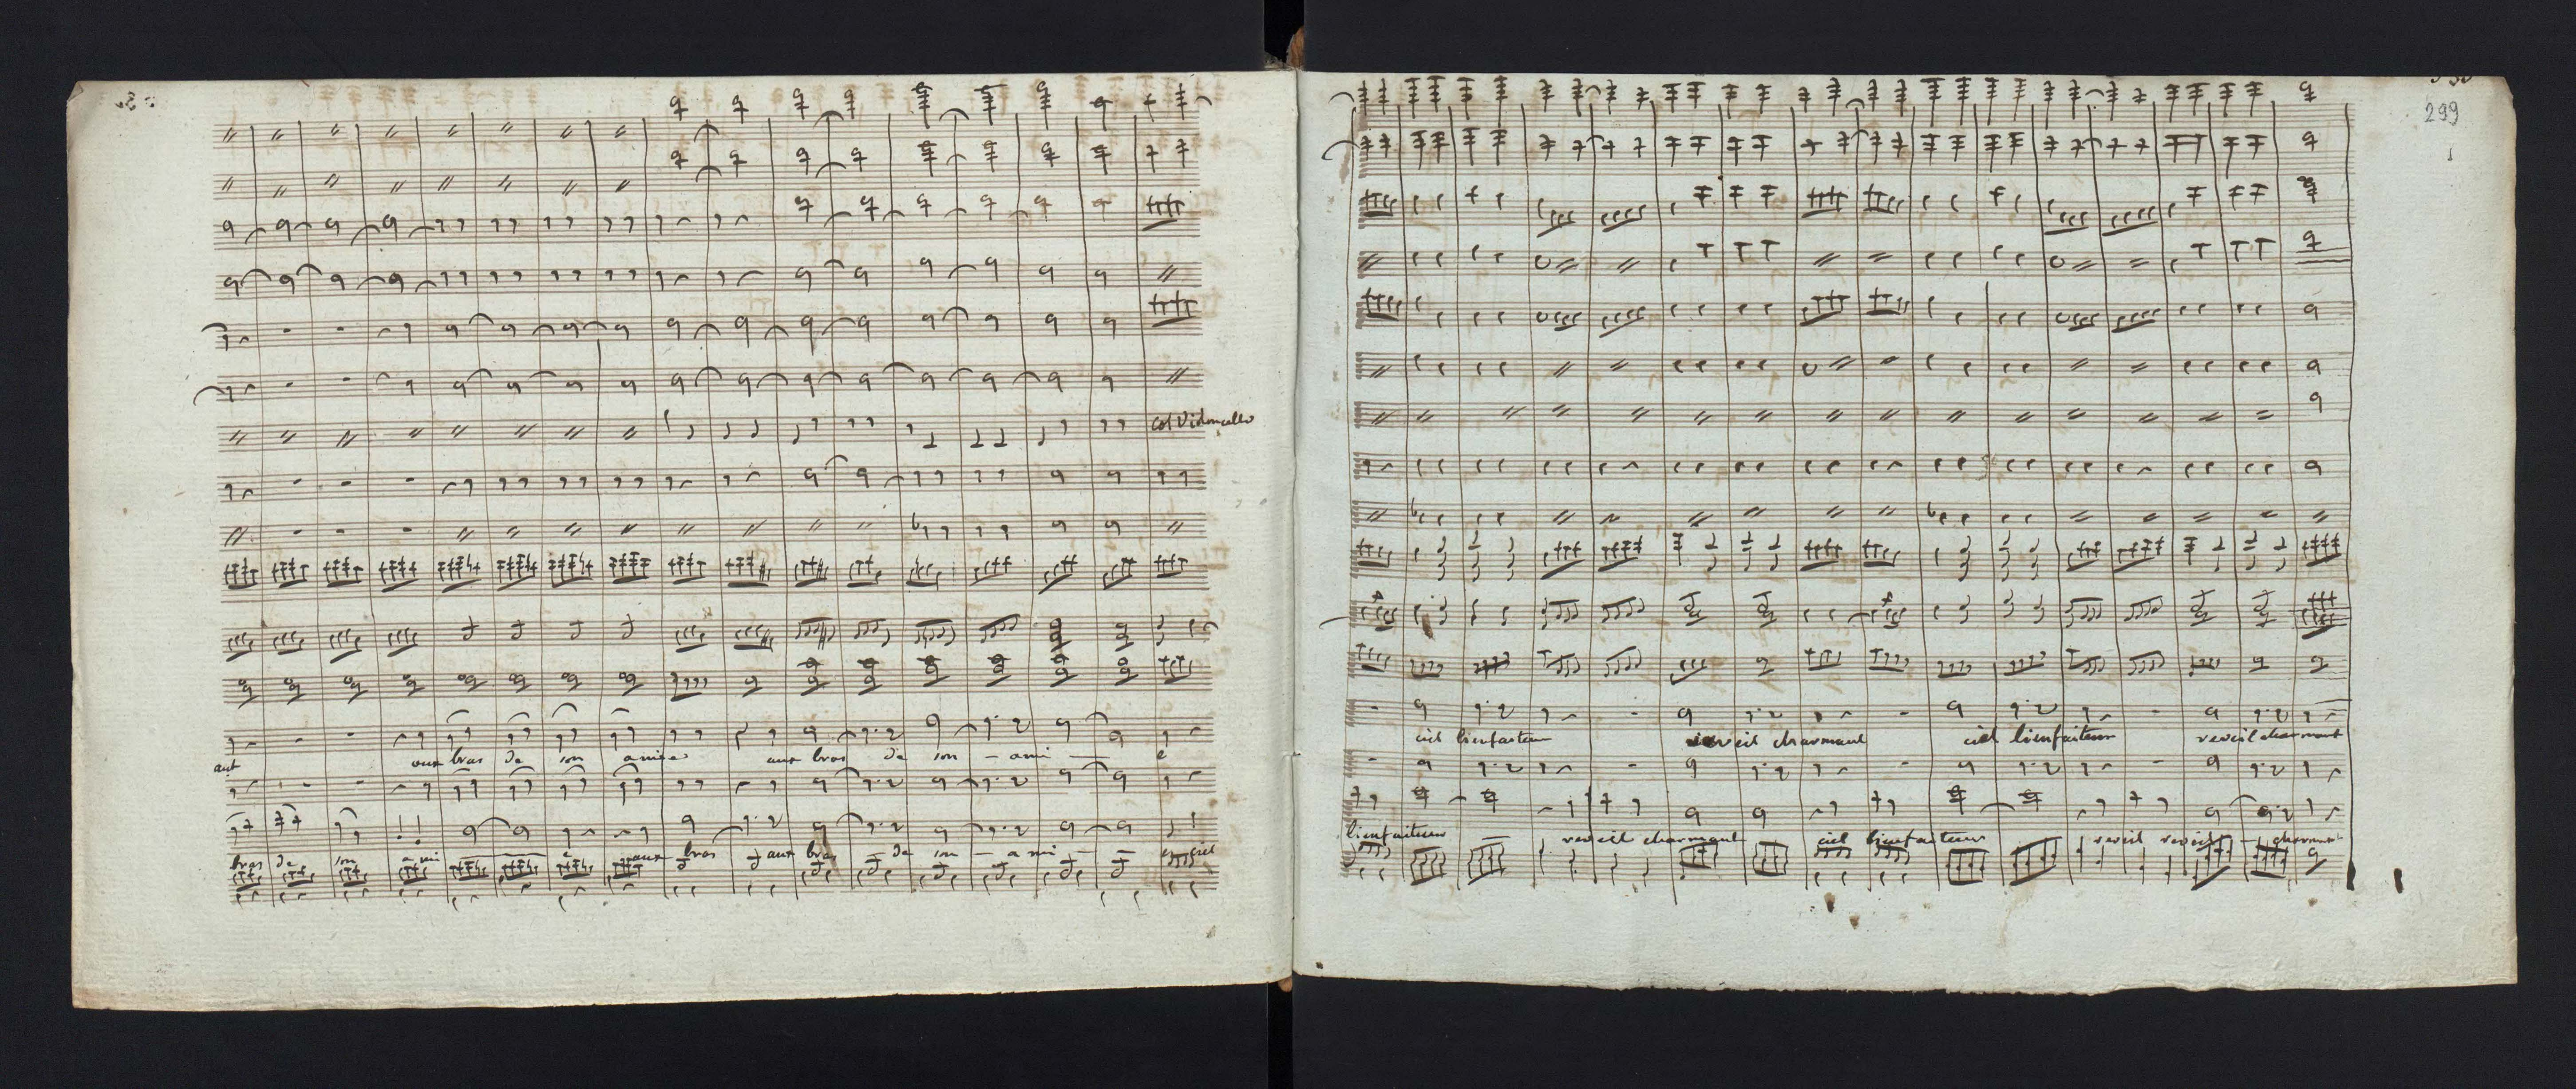 col Violoncello
aux bras de son amie aux bras de son - ami - e
bras de son - ami - e aux bras aux bras - de son - a mi - e ciel
299
ciel bienfaiteur reveil charmant ciel bienfaiteur reveil charmant
bienfaiteur reveil charmant ciel bienfaiteur reveil reveil - charmant